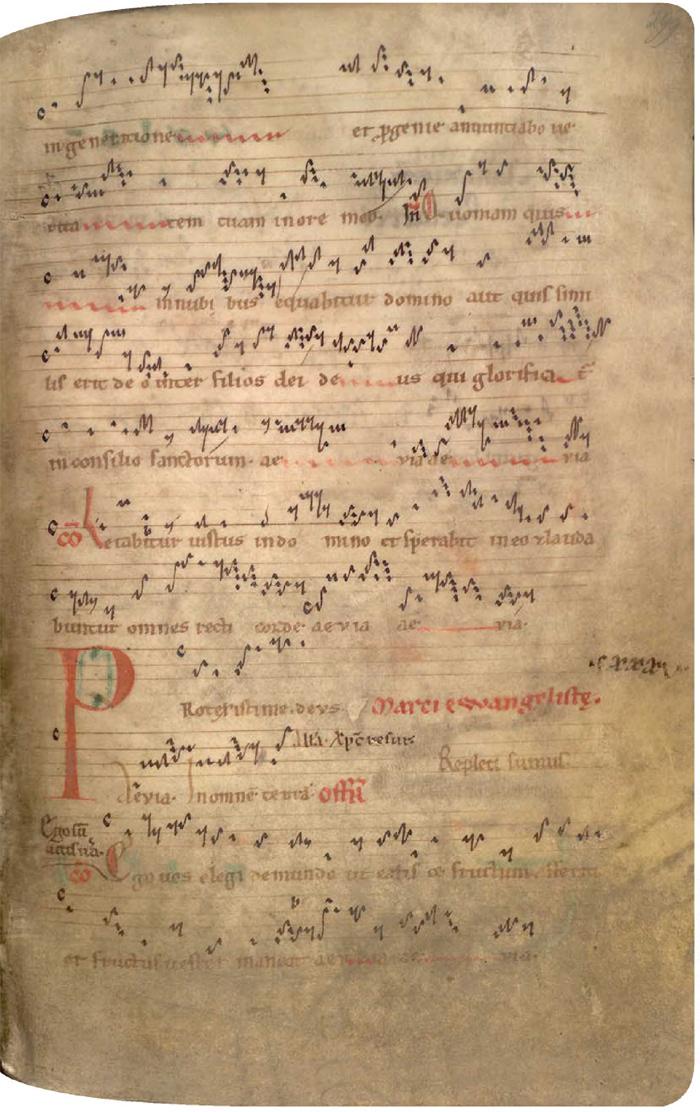 in generatione et ꝓgenie annunciabo ue
rita tem tuam in ore meo. Quoniam quis
in nubi bus equabitur domino aut quis simi
lis erit deo inter filios dei de us qui glorifica
in consilio sanctorum. ae via ae via
co Letabitur iustus in do mino et sperabit in eo ⁊ lauda
buntur omnes recti corde aevia ae via.
Protexistime. deus Marci ewangeliste.
Alla. Xpc resur.
Repleti sumus
aevia. In omnē terrā offm̄
Ego sū
co Ego vos elegi de mundo ut eatis et fructum
et fructus uester maneat ae ae via.